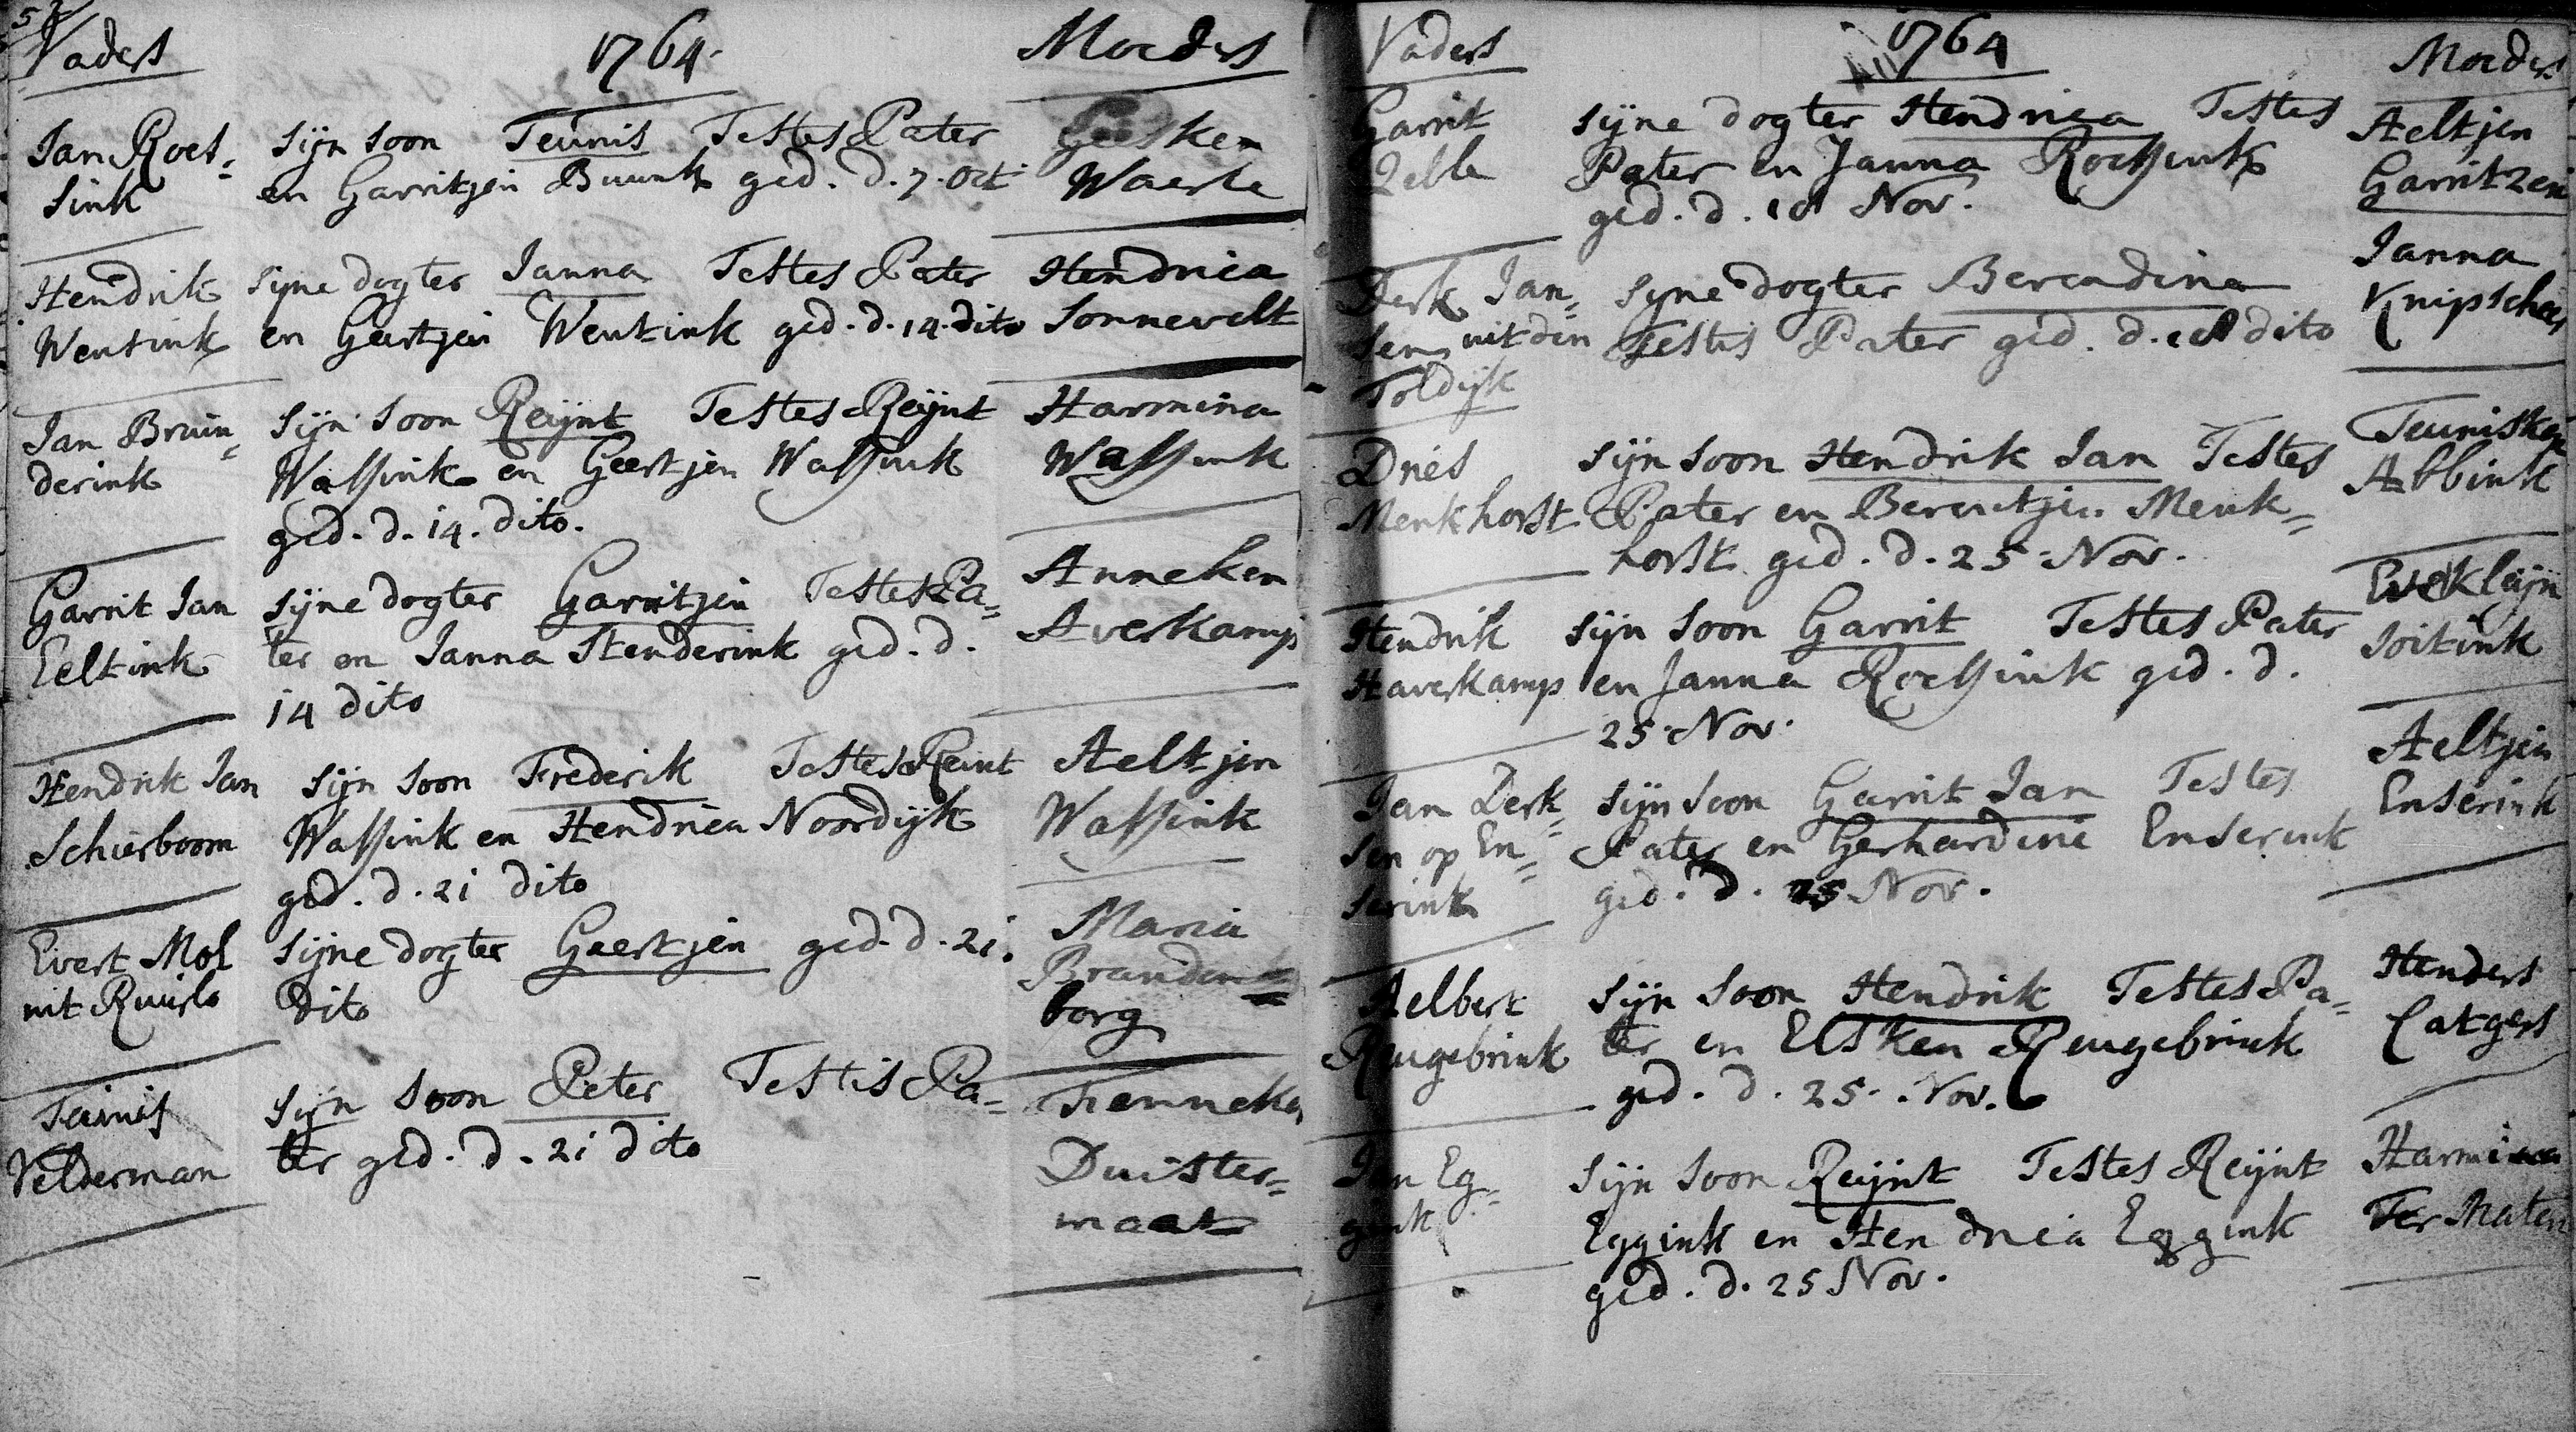 52
Vaders 1764. Moeders
Jan Roes= sijn soon Teunis Testes Pater Geesken
sink en Garritjen Buunk ged. d. 7. Oct Waerle
Hendrik sijne dogter Janna Testes Pater Hendrica
Wentink en Geertjen Wentink ged. d. 14. dito Sonnevelt
Jan Bruin= sijn soon Reijnt Testes Reijnt Harmina
derink Wassink en Geertjen Wassink Wassink
ged. d. 14. dito.
Garrit Jan sijne dogter Garritjen Testes Pa= Anneken
Eeltink ter en Janna Henderink ged. d. Averkamp
14 dito
Hendrik Jan sijn soon Frederik Testes Reint Aeltjen
Schierboom Wassink en Hendrica Noordijk Wassink
ged. d. 21 dito
Evert Mol sijne dogter Geertjen ged. d. 21. Maria
uit Ruurlo dito Branden
borg
Teunis sijn soon Peter Testis Pa= Fenneken
Velderman ter ged. d. 21 dito Duister=
maat
Vaders 1764 Moeders
Garrit sijne dogter Hendrica Testes Aeltjen
Zelle Pater en Janna Roessink Garritzen
ged. d. 18 Nov.
Derk Jan= sijne dogter Berendina Janna
sen uit den Testis Pater ged. d. 18 dito Knipscheer
Toldijk
Dries sijn soon Hendrik Jan Testes Teunisken
Menkhorst Pater en Berentjen Menk= Abbink
horst ged. d. 25 Nov.
Hendrik sijn soon Garrit Testes Pater Everklijn
Haverkamp en Janna Roessink ged. d. Soitink
25 Nov.
Jan Derk= sijn soon Garrit Jan Testes Aeltjen
sen op En= Pater en Gerhardine Enserink Enserink
serink ged. d. 25 Nov.
Aelbert sijn soon Hendrik Testes Pa= Henders
Reugebrink ter en Elsken Reugebrink Catgers
ged. d. 25. Nov.
Jan Eg= sijn soon Reijnt Testes Reijnt Harmina
gink Eggink en Hendrica Eggink Ter Maten
ged. d. 25 Nov.